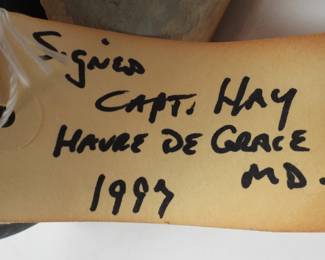 Signed
Capt. Hay
Havre de Grace
MD.
1997